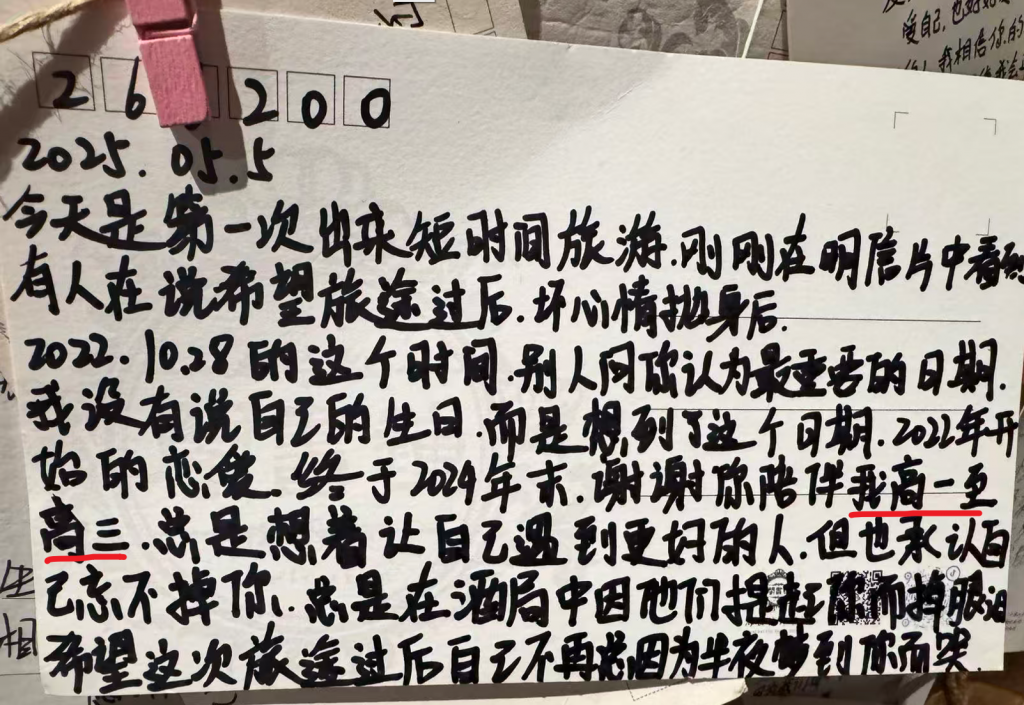 26 200
2025.05.5
今天是第一次出来短时间旅游.刚刚在明信片中看到
有人在说希望旅途过后.坏心情抛身后.
2022.10.28的这个时间.别人问你认为最重要的日期.
我没有说自己的生日.而是想到了这个日期.2022年开
始的恋爱.终于2024年末.谢谢你陪伴我高一至
高三.总是想着让自己遇到更好的人.但也承认自
己忘不掉你.总是在酒局中因他们提起你而掉眼泪
希望这次旅途过后自己不再总因为半夜梦到你而哭.
爱自己,也好好
我相信你的